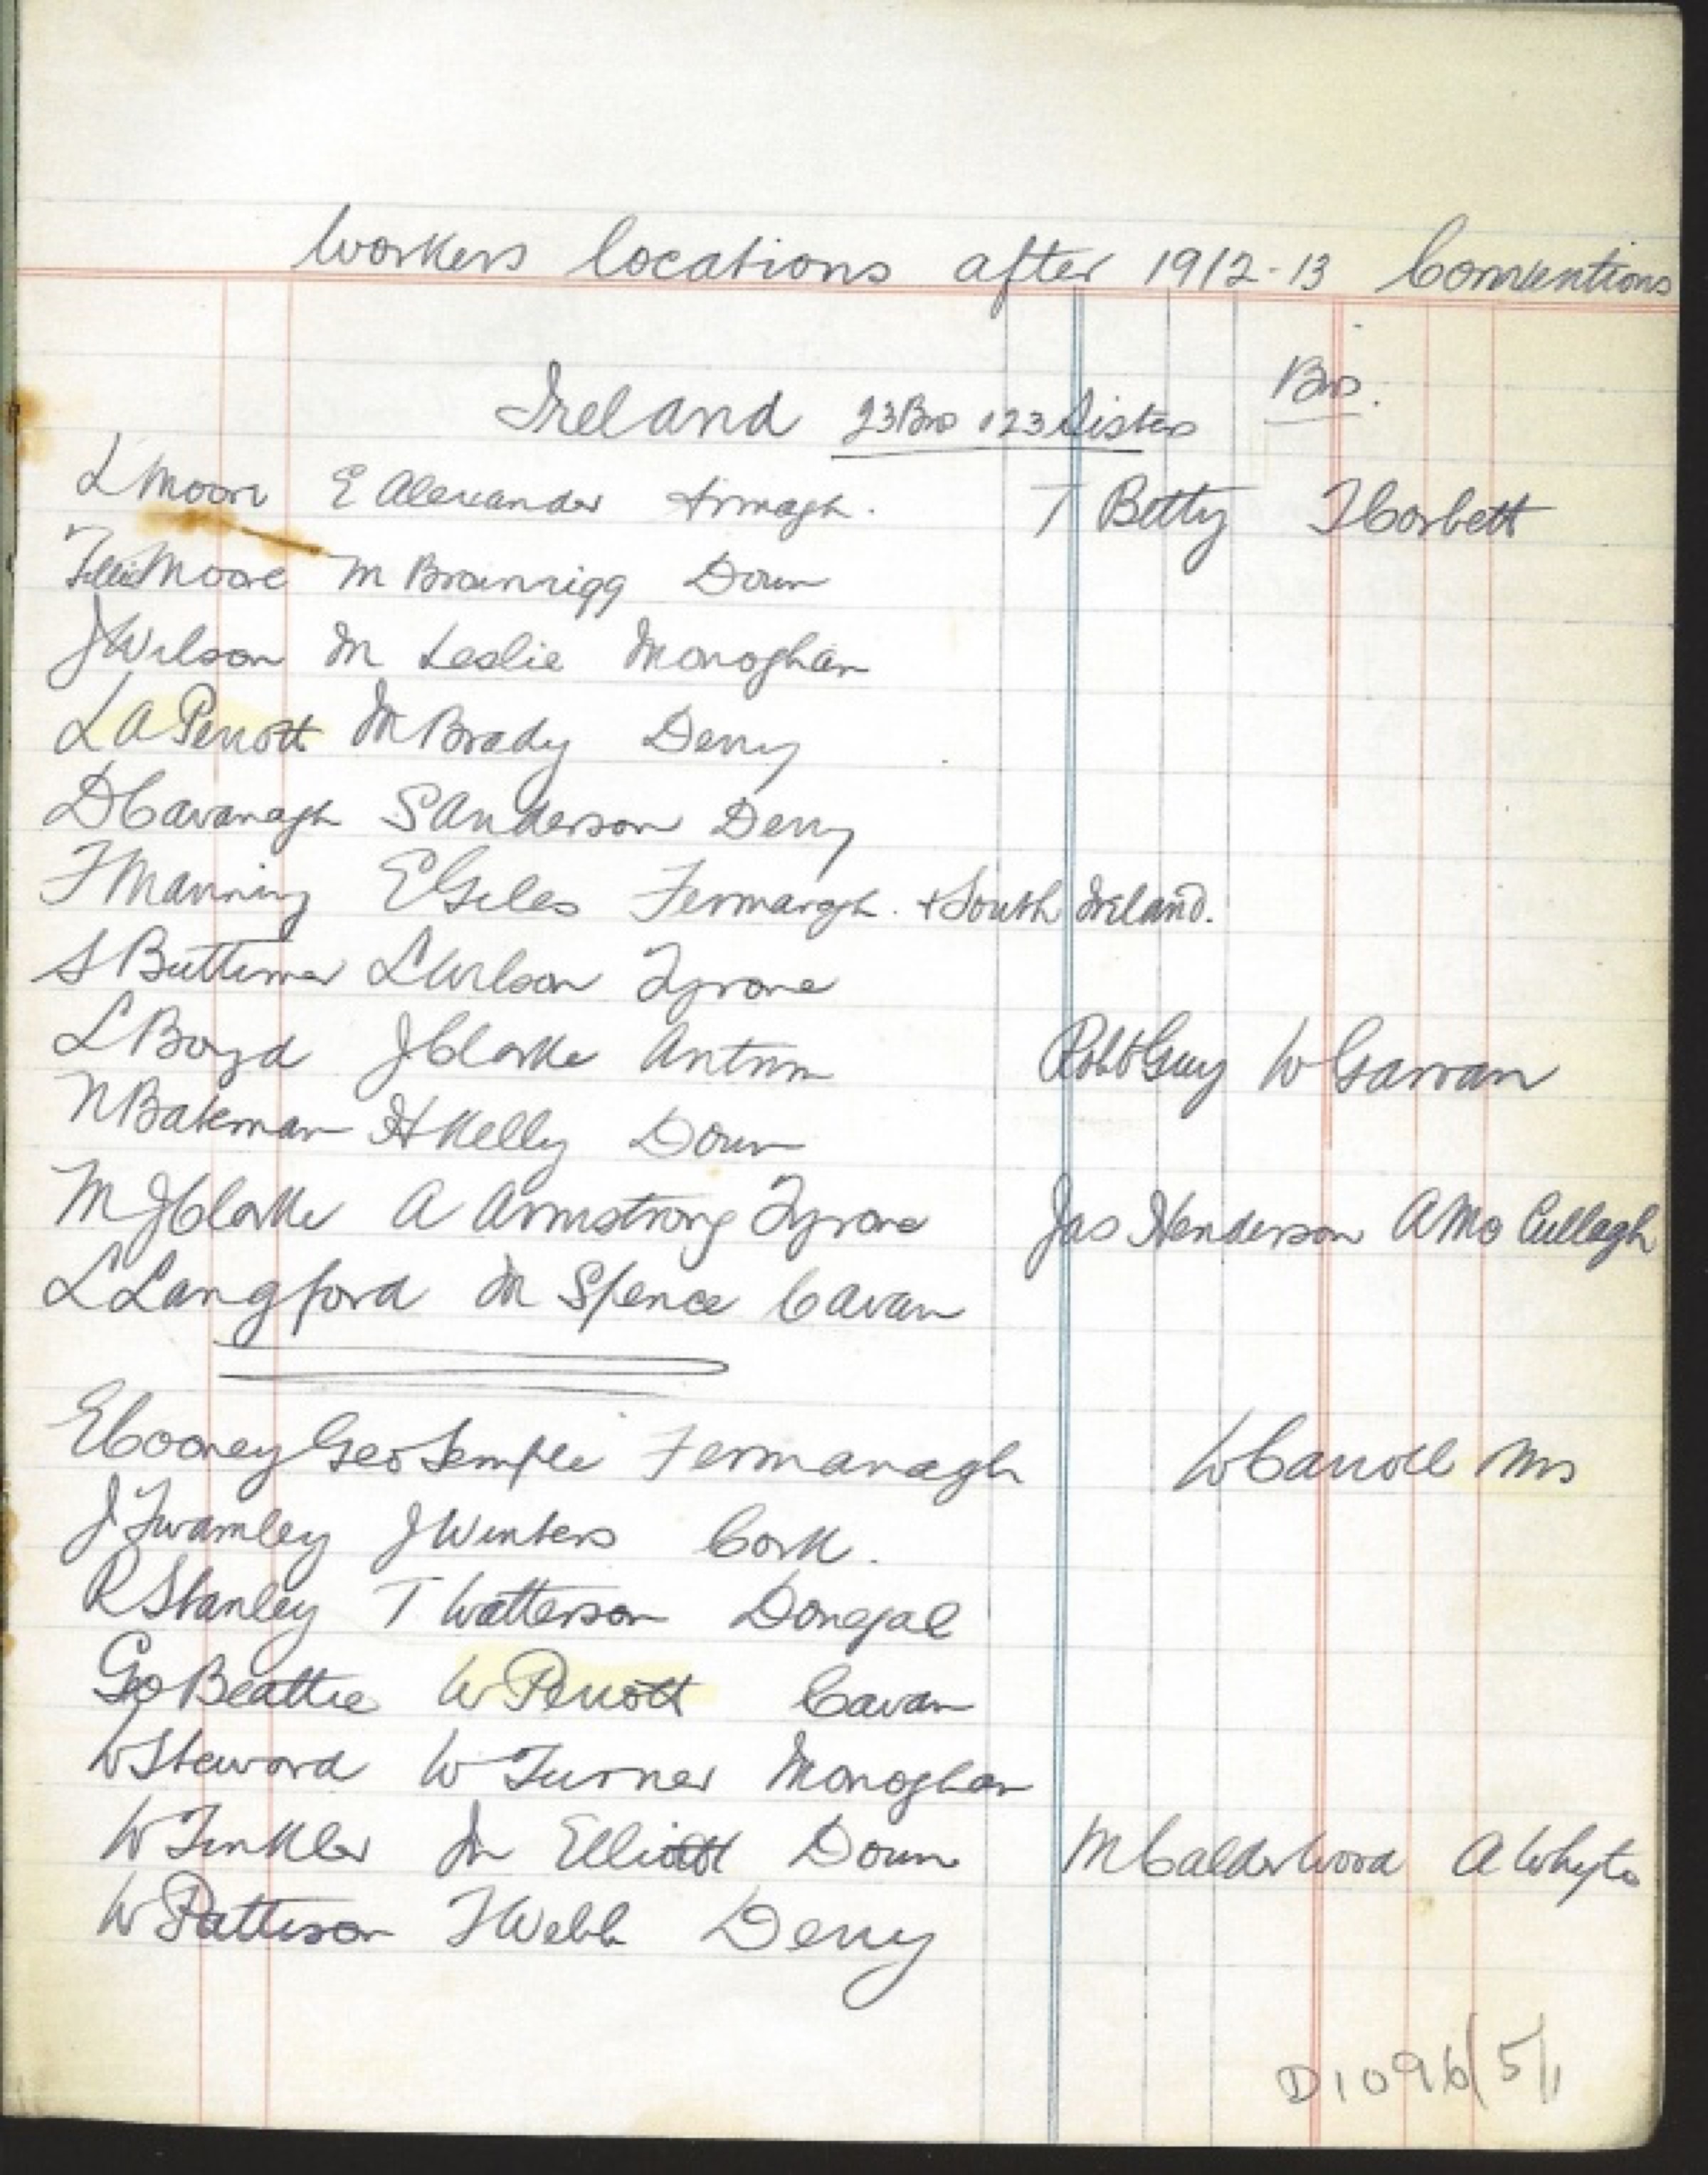 Workers locations after 1912-13 Conventions
Bro.
Ireland 23 Bro 23 Sisters
L Moore E Alexander Armagh. T Betty J Corbett
Tillie Moore M Brownrigg Down
J Wilson M Leslie Monoghan
L A Perrott M Brady Derry
D Cavanagh S Anderson Derry
F Manning E Giles Fermanagh. + South Ireland.
S Buttimer L Wilson Tyrone
L Boyd J Clarke Antrim Robt Guy W Garvan
N Bateman H Kelly Down
M J Clarke A Armstrong Tyrone Jas Henderson A Mc Cullagh
L Langford M Spence Cavan
E Cooney Geo Semple Fermanagh W Carroll Mrs
J Twamley J Winters Cork.
R Stanley T Watterson Donegal
Geo Beattie W Perrott Cavan
W Steward W Turner Monoghan
W Tinkler M Elliott Down M Calderwood A Whyte
W Pattison F Webb Derry
D1096/5/1